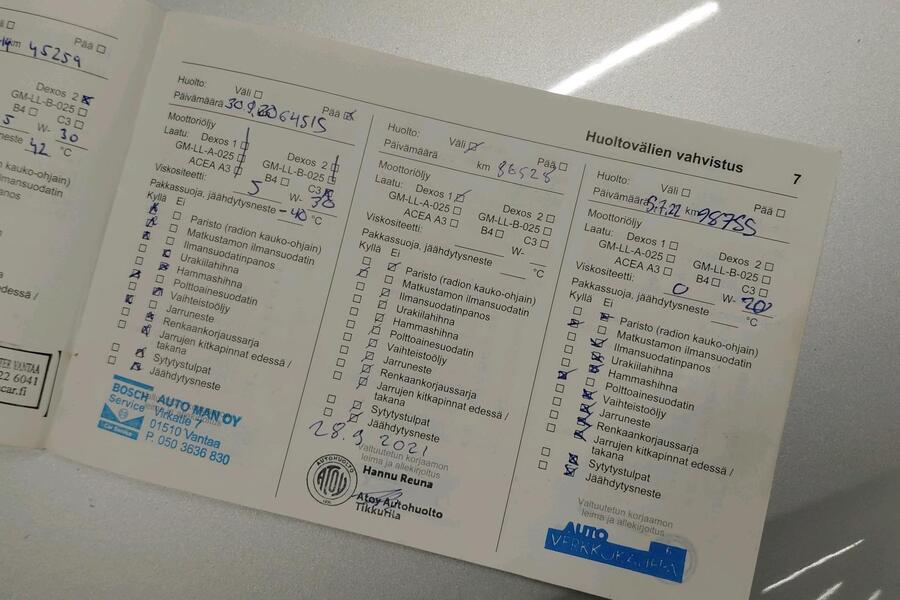 km 45259
Pää
Dexos 2
GM-LL-B-025
B4 C3
5 W- 30
42 °C
22 6041
Huolto: Väli Pää
Päivämäärä 30.9.20 64515
Moottoriöljy
Laatu: Dexos 1 Dexos 2
GM-LL-A-025 GM-LL-B-025
ACEA A3 B4 C3
Viskositeetti: 5 W- 30
Pakkassuoja, jäähdytysneste -40 °C
Kyllä Ei
Paristo (radion kauko-ohjain)
Matkustamon ilmansuodatin
Ilmansuodatinpanos
Urakiilahihna
Hammashihna
Polttoainesuodatin
Vaihteistoöljy
Jarruneste
Renkaankorjaussarja
Jarrujen kitkapinnat edessä /
takana
Sytytystulpat
Jäähdytysneste
BOSCH Service
Car Service
AUTO MAN OY
Virkatie 7
01510 Vantaa
P. 050 3636 830
Huolto: Väli Pää
Päivämäärä km 86528
Moottoriöljy
Laatu: Dexos 1 Dexos 2
GM-LL-A-025 GM-LL-B-025
ACEA A3 B4 C3
Viskositeetti: W-
Pakkassuoja, jäähdytysneste °C
Kyllä Ei
Paristo (radion kauko-ohjain)
Matkustamon ilmansuodatin
Ilmansuodatinpanos
Urakiilahihna
Hammashihna
Polttoainesuodatin
Vaihteistoöljy
Jarruneste
Renkaankorjaussarja
Jarrujen kitkapinnat edessä /
takana
Sytytystulpat
Jäähdytysneste
28.9.2021
Valtuutetun korjaamon
leima ja allekirjoitus
AUTOHUOLTO
ATOY
Hannu Reuna
Atoy Autohuolto
Tikkurila
Huoltovälien vahvistus 7
Huolto: Väli Pää
Päivämäärä 5.7.22 km 98755
Moottoriöljy
Laatu: Dexos 1 Dexos 2
GM-LL-A-025 GM-LL-B-025
ACEA A3 B4 C3
Viskositeetti: 0 W- 20
Pakkassuoja, jäähdytysneste °C
Kyllä Ei
Paristo (radion kauko-ohjain)
Matkustamon ilmansuodatin
Ilmansuodatinpanos
Urakiilahihna
Hammashihna
Polttoainesuodatin
Vaihteistoöljy
Jarruneste
Renkaankorjaussarja
Jarrujen kitkapinnat edessä /
takana
Sytytystulpat
Jäähdytysneste
Valtuutetun korjaamon
leima ja allekirjoitus
AUTO